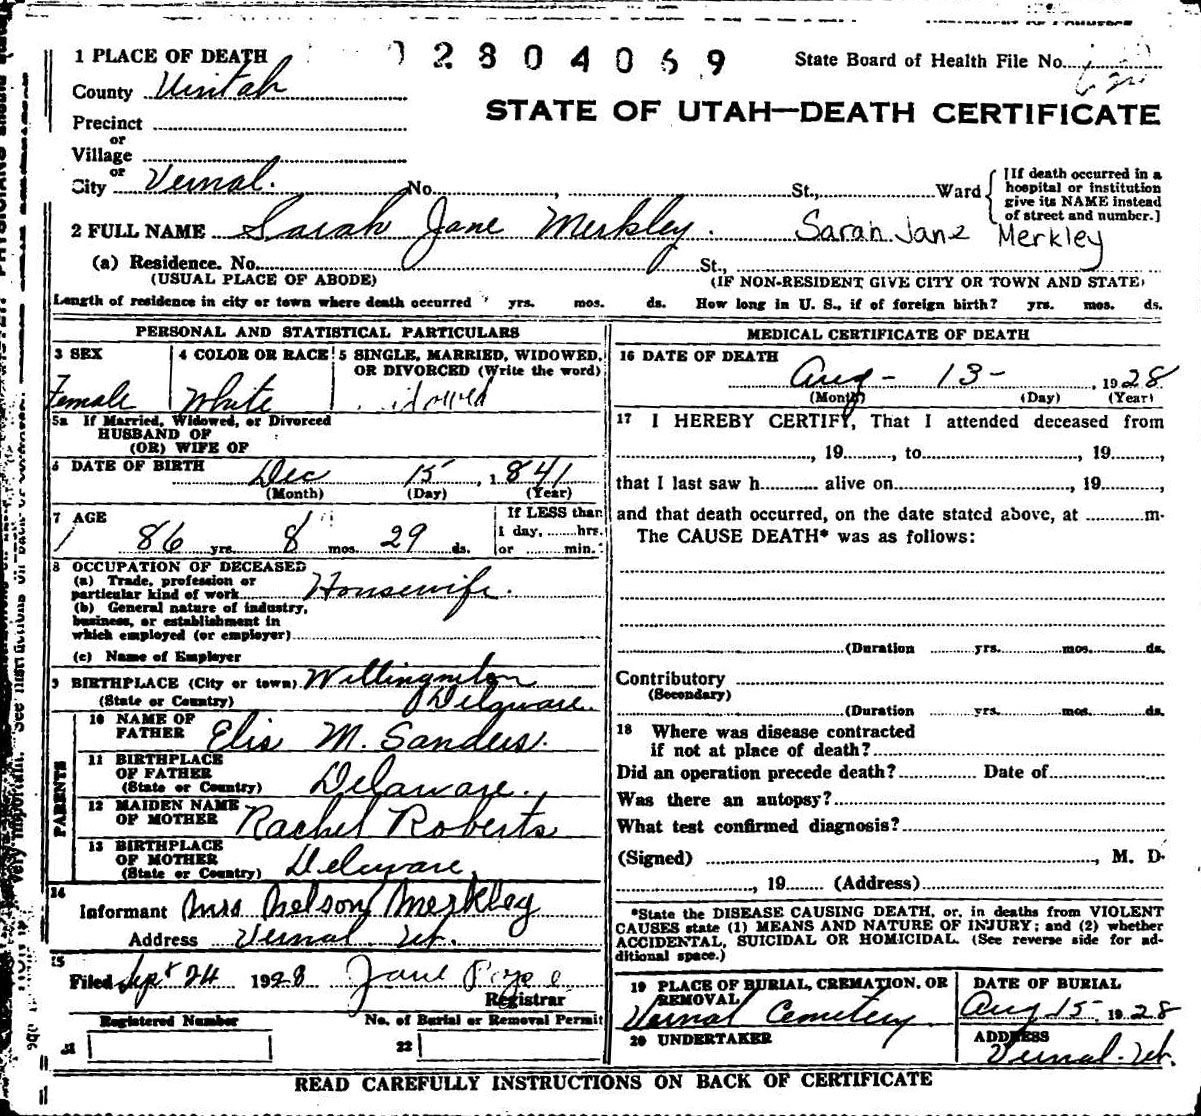 DEPARTMENT OF COMMERCE
1 PLACE OF DEATH
2804069
State Board of Health File No.
County Uintah
STATE OF UTAH—DEATH CERTIFICATE
Precinct
or
Village
or
City Vernal. No. , St., Ward
[If death occurred in a
hospital or institution
give its NAME instead
of street and number.]
2 FULL NAME Sarah Jane Merkley. Sarah Jane Merkley
(a) Residence. No. St.,
(USUAL PLACE OF ABODE) (IF NON-RESIDENT GIVE CITY OR TOWN AND STATE)
Length of residence in city or town where death occurred yrs. mos. ds. How long in U. S., if of foreign birth? yrs. mos. ds.
PERSONAL AND STATISTICAL PARTICULARS
3 SEX
Female
4 COLOR OR RACE
White
5 SINGLE, MARRIED, WIDOWED,
OR DIVORCED (Write the word)
idowed
5a If Married, Widowed, or Divorced
HUSBAND OF
(OR) WIFE OF
6 DATE OF BIRTH
Dec 15, 1841
(Month) (Day) (Year)
7 AGE
86 yrs. 8 mos. 29 ds.
If LESS than
1 day, hrs.
or min.
8 OCCUPATION OF DECEASED
(a) Trade, profession or
particular kind of work Housewife.
(b) General nature of industry,
business, or establishment in
which employed (or employer)
(c) Name of Employer
9 BIRTHPLACE (City or town) Willingmiton
(State or Country) Delaware.
PARENTS
10 NAME OF
FATHER Elis M. Sanders.
11 BIRTHPLACE
OF FATHER
(State or Country) Delaware.
12 MAIDEN NAME
OF MOTHER Rachel Roberts
13 BIRTHPLACE
OF MOTHER
(State or Country) Delaware,
14
Informant Mrs Nelson Merkley
Address Vernal Ut.
15
Filed Sept 24 1928 Jane Pope
Registrar
Registered Number No. of Burial or Removal Permit
21 22
MEDICAL CERTIFICATE OF DEATH
16 DATE OF DEATH
Aug - 13 - , 1928
(Month) (Day) (Year)
17 I HEREBY CERTIFY, That I attended deceased from
, 19 , to , 19 ,
that I last saw h alive on , 19 ,
and that death occurred, on the date stated above, at m.
The CAUSE DEATH* was as follows:
(Duration yrs. mos. ds.
Contributory
(Secondary)
(Duration yrs. mos. ds.
18 Where was disease contracted
if not at place of death?
Did an operation precede death? Date of
Was there an autopsy?
What test confirmed diagnosis?
(Signed) , M. D.
, 19 (Address)
*State the DISEASE CAUSING DEATH, or, in deaths from VIOLENT
CAUSES state (1) MEANS AND NATURE OF INJURY; and (2) whether
ACCIDENTAL, SUICIDAL OR HOMICIDAL. (See reverse side for ad-
ditional space.)
19 PLACE OF BURIAL, CREMATION, OR
REMOVAL
Vernal Cemetery
DATE OF BURIAL
Aug 15 1928
20 UNDERTAKER
ADDRESS
Vernal. Ut.
READ CAREFULLY INSTRUCTIONS ON BACK OF CERTIFICATE